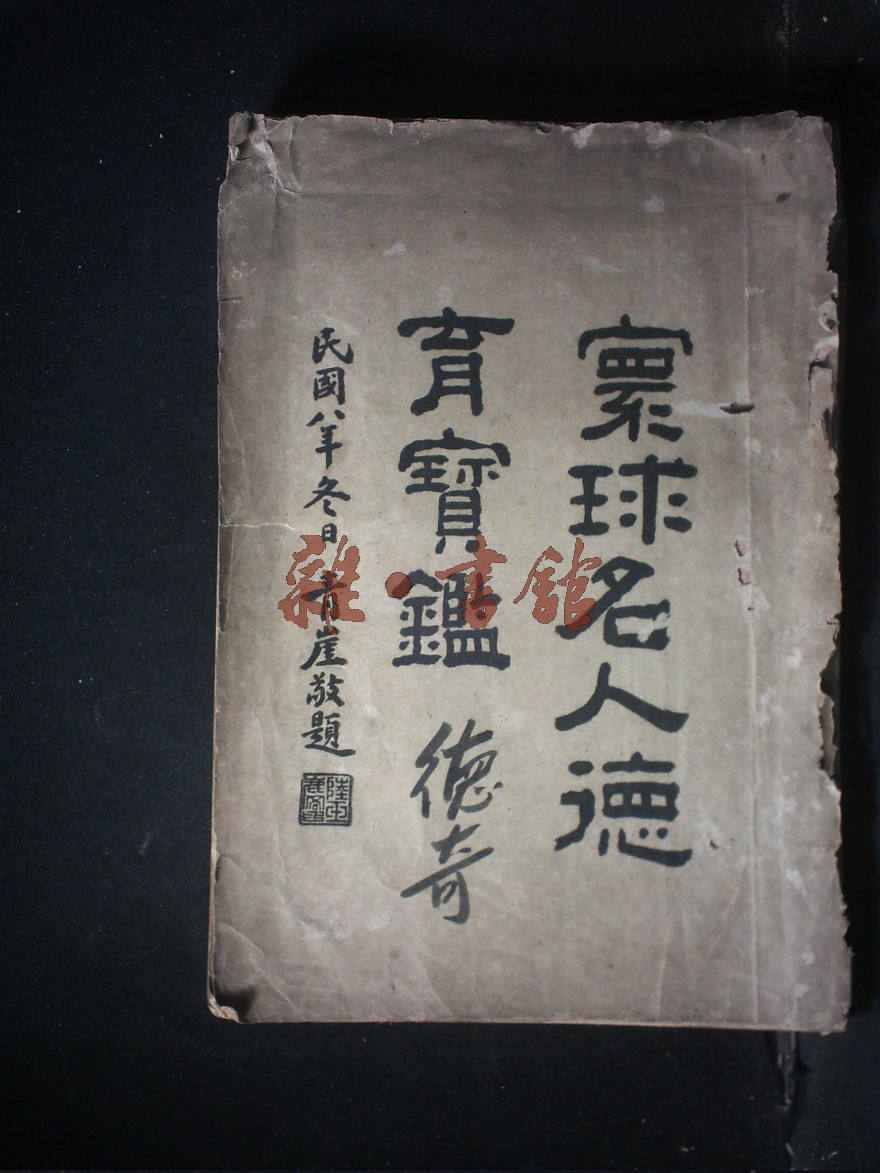 寰球名人德
育寶鑑 德奇
民國八年冬日 青崖敬題
雜·書館